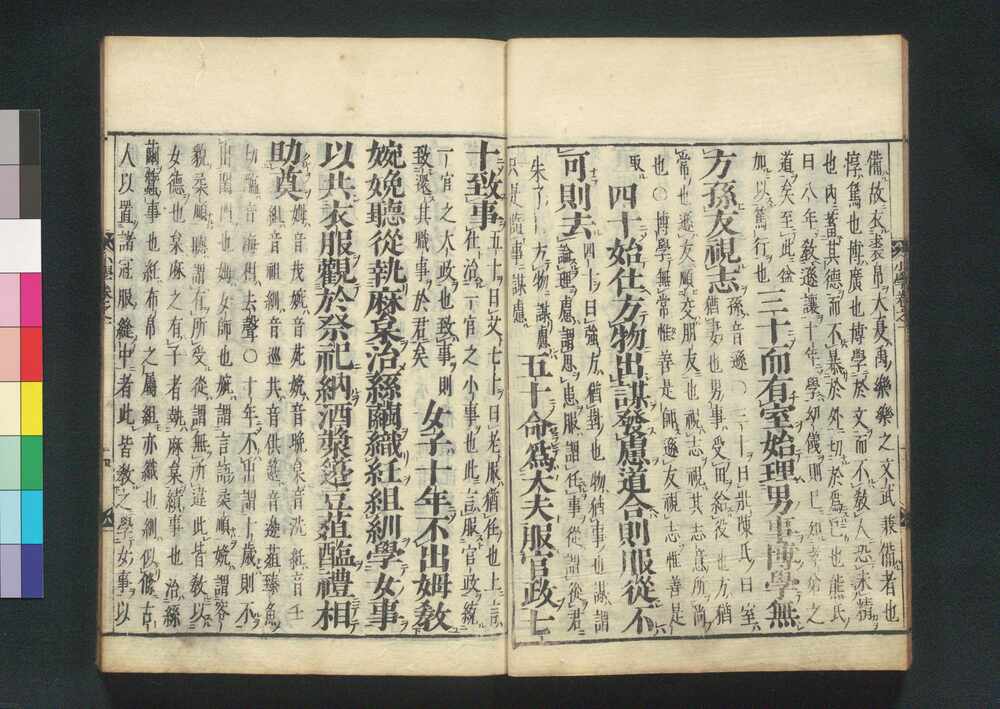 備故衣裘帛大夏禹樂樂之文武兼備者也
惇篤也博廣也博學於文而不敎人恐未精
也內蓄其德而不暴於外切於爲己也熊氏
曰八年敎遜讓十年學幼儀則
道矣至此益
加以篤行也
三十而有室始理男事博學無
方孫友視志
孫音遜〇三十曰壯陳氏曰室
猶妻也男事受田給役也方猶
常也遜友順交朋友也視志視其志意所尚
也〇博學無常惟善是師遜友視志惟善是
取
四十始仕方物出謀發慮道合則服從不
可則去
四十曰強方猶對也物猶事也謀謂
論理慮謂思慮服謂任事從謂從君
朱子曰方物謀慮
只是隨事謀慮
五十命爲大夫服官政七
十致事
五十曰艾七十曰老服猶任也上言
仕治一官之小事也此言服官政統
一官之大政也致事則
致還其職事於君矣
女子十年不出姆敎
婉娩聽從執麻枲治絲繭織紝組紃學女事
以共衣服觀於祭祀納酒漿籩豆菹醢禮相
助奠
姆音茂婉音苑娩音晚枲音洗紝音壬
組音祖紃音巡共音供籩音邊菹臻魚
切醢音海相去聲〇十年不出謂十歲則不
出閨門也姆女師也婉謂言語柔順娩謂容
貌柔順聽謂有所受從謂無所違此皆敎以
女德也枲麻之有子者執麻枲績事也治絲
繭蠶事也紝布帛之屬組亦織也紃似絛古
人以置諸冠服縫中者此皆敎之學女事以